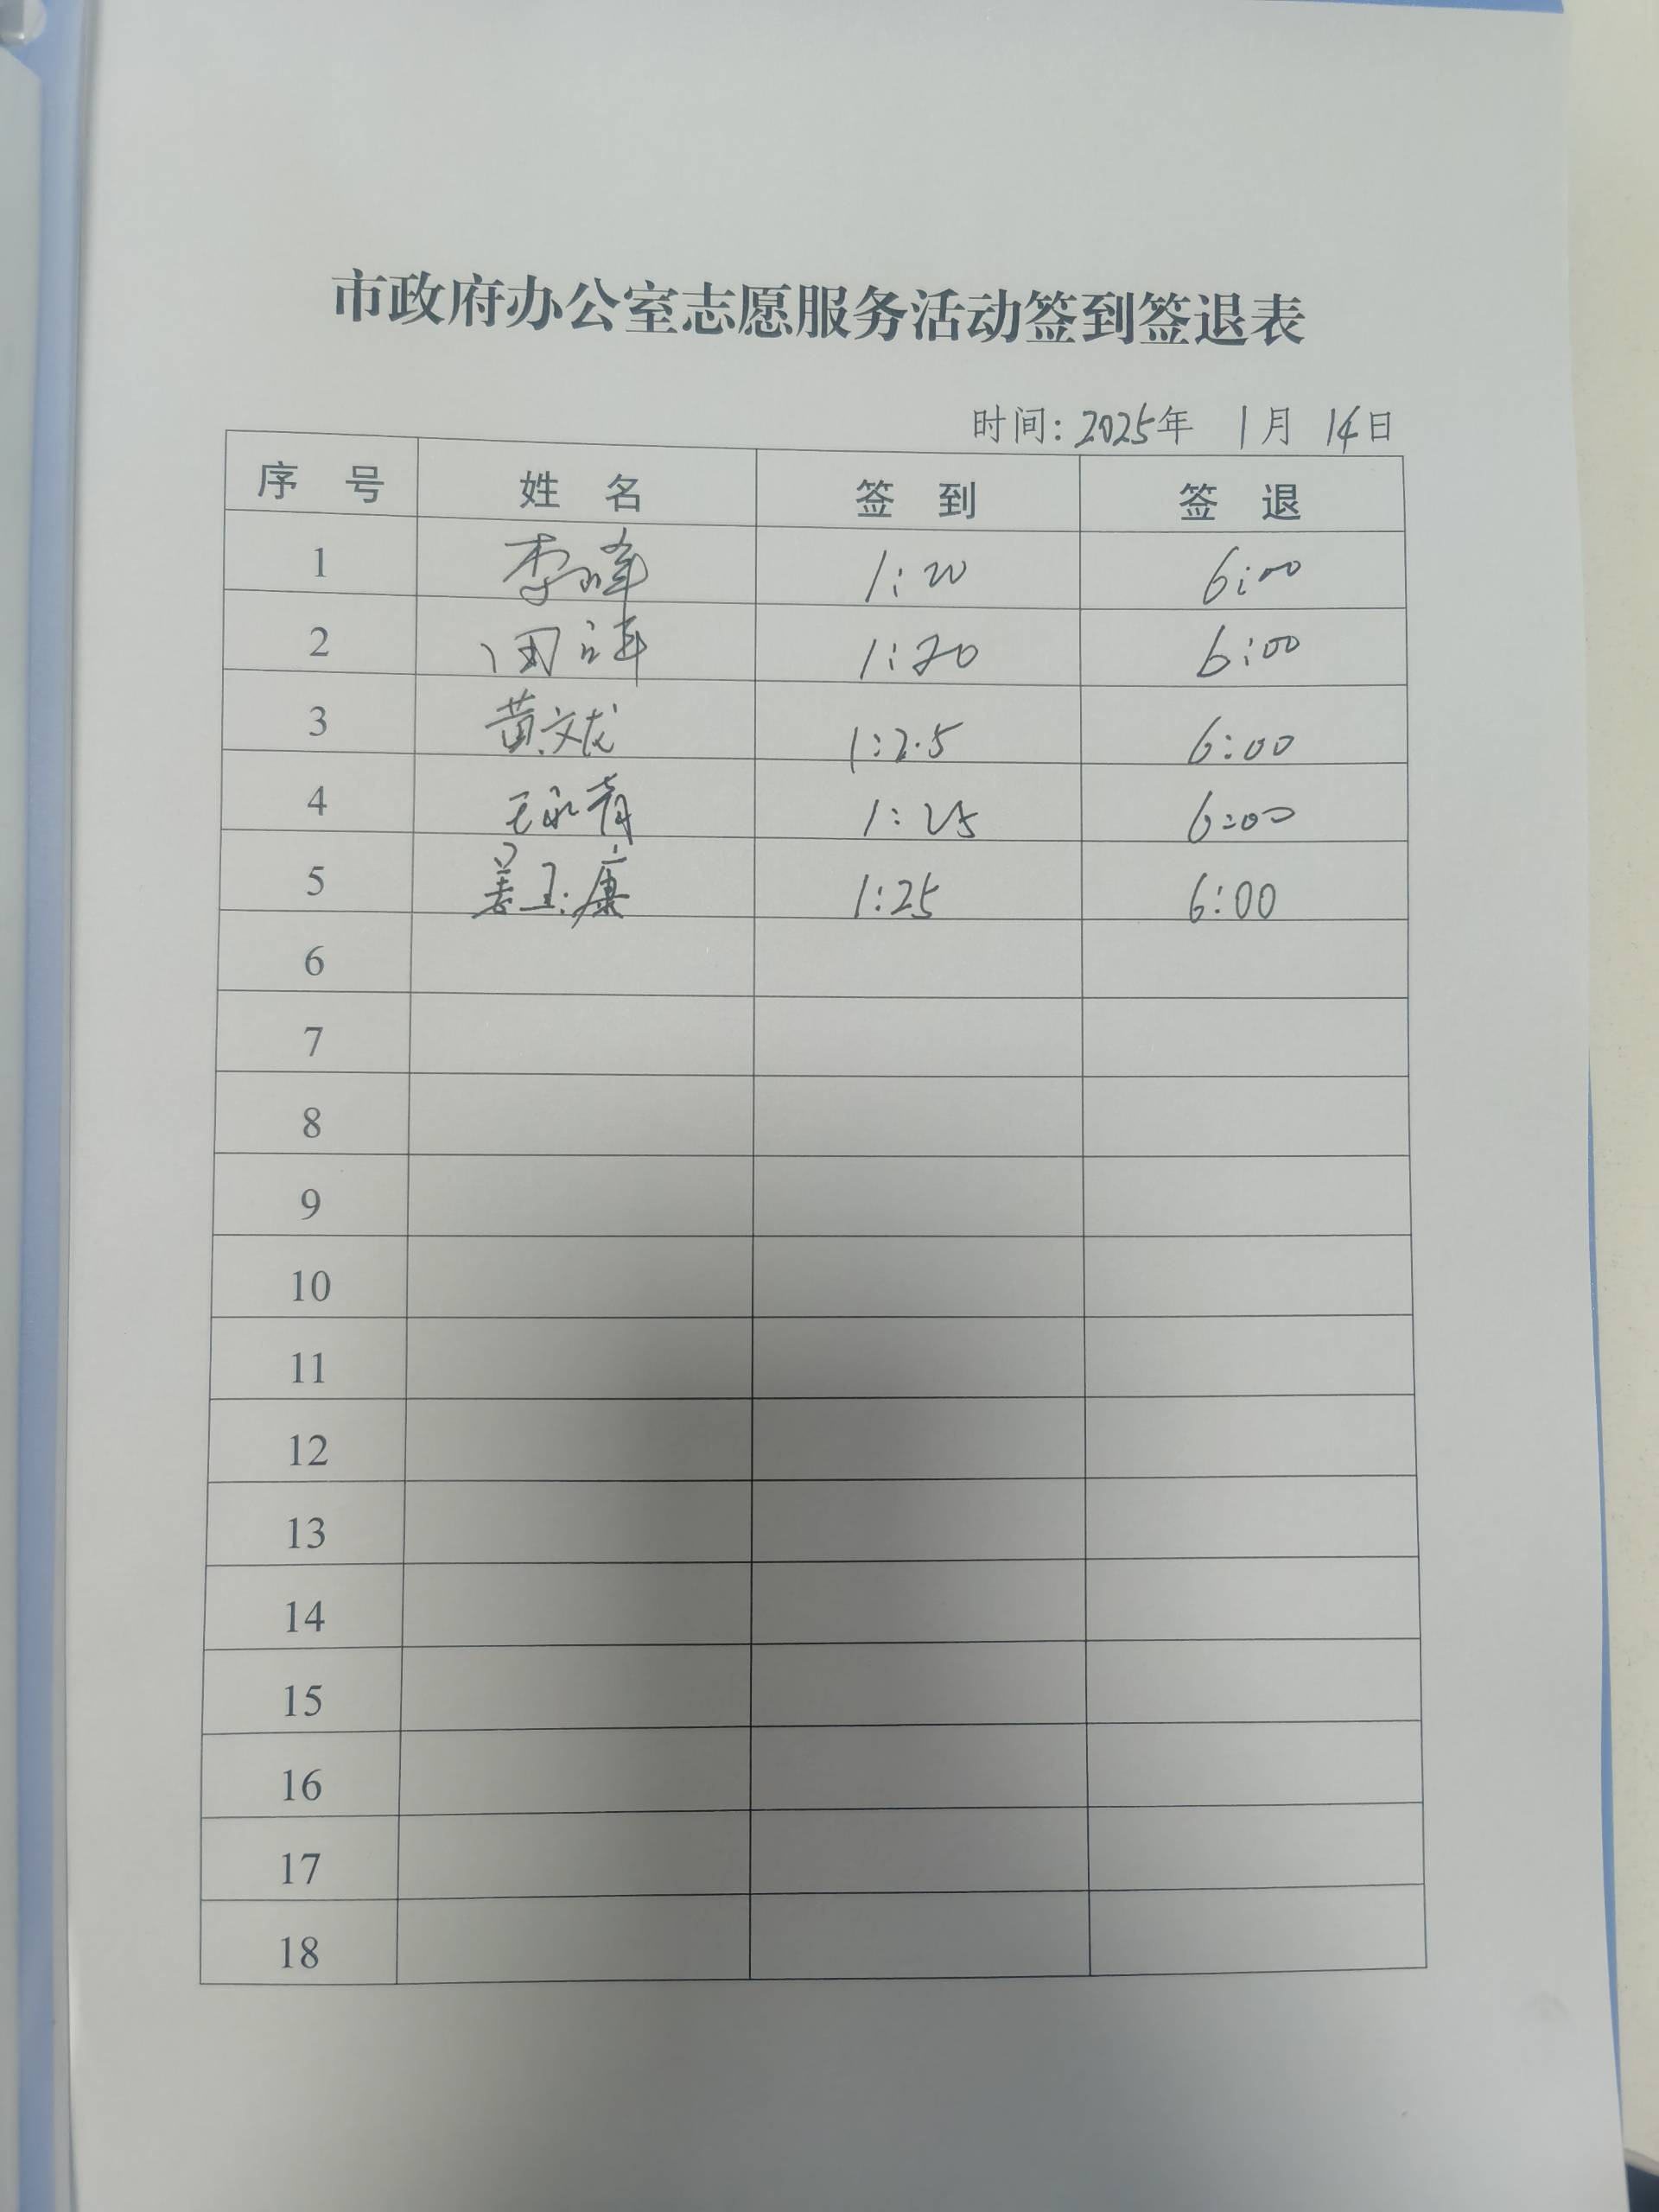 市政府办公室志愿服务活动签到签退表
时间: 2025年 1月 14日
序号 姓名 签到 签退
1 李峰 1:20 6:00
2 1:20 6:00
3 黄文龙 1:2.5 6:00
4 王永青 1:25 6:00
5 姜玉康 1:25 6:00
6
7
8
9
10
11
12
13
14
15
16
17
18